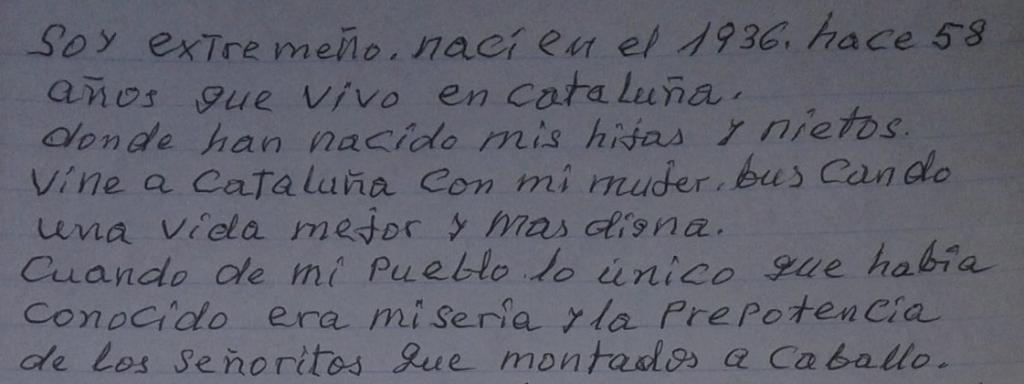 Soy extremeño. nací en el 1936. hace 58
años que vivo en cataluña.
donde han nacido mis hijas y nietos.
Vine a Cataluña con mi mujer. buscando
una vida mejor y mas digna.
Cuando de mi Pueblo lo único que había
conocido era miseria y la Prepotencia
de los señoritos que montados a caballo.